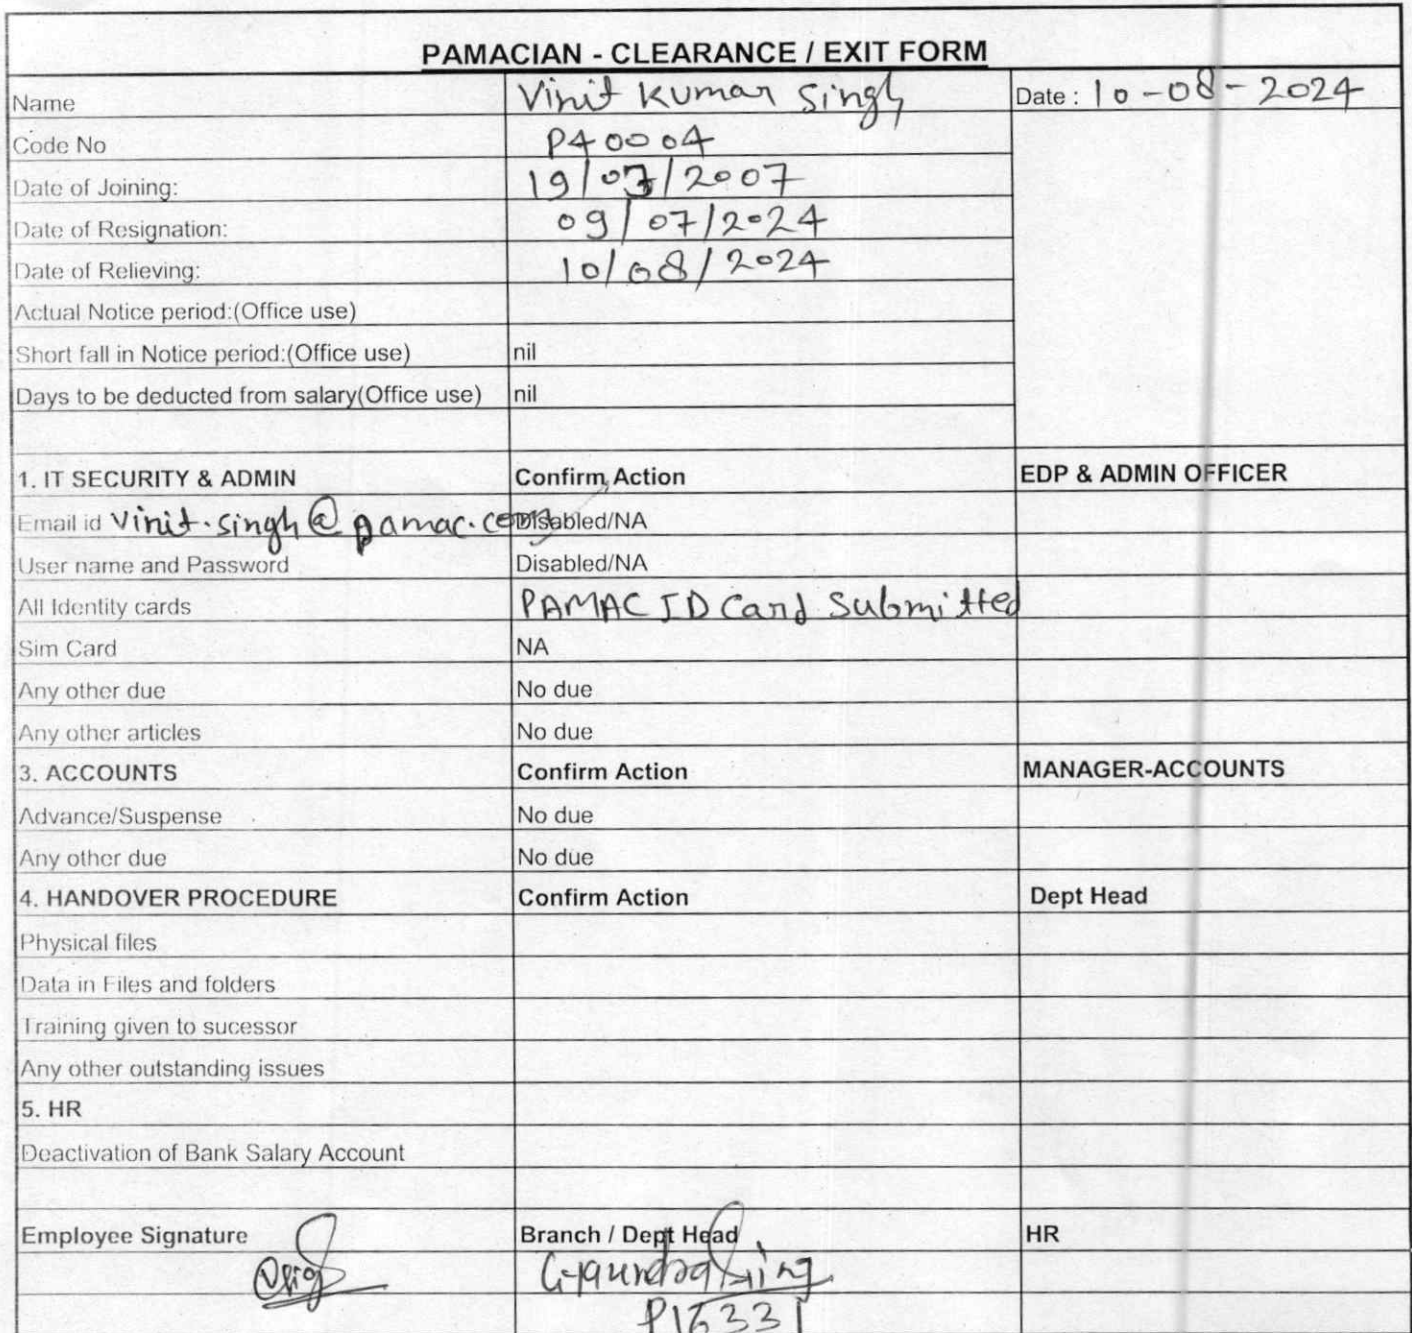 PAMACIAN - CLEARANCE / EXIT FORM
Name Vinit Kumar Singh Date : 10-08-2024
Code No P40004
Date of Joining: 19/07/2007
Date of Resignation: 09/07/2024
Date of Relieving: 10/08/2024
Actual Notice period:(Office use)
Short fall in Notice period:(Office use) nil
Days to be deducted from salary(Office use) nil
1. IT SECURITY & ADMIN Confirm Action EDP & ADMIN OFFICER
Email id vinit.singh@pamac.com Disabled/NA
User name and Password Disabled/NA
All Identity cards PAMAC ID Card Submitted
Sim Card NA
Any other due No due
Any other articles No due
3. ACCOUNTS Confirm Action MANAGER-ACCOUNTS
Advance/Suspense No due
Any other due No due
4. HANDOVER PROCEDURE Confirm Action Dept Head
Physical files
Data in Files and folders
Training given to sucessor
Any other outstanding issues
5. HR
Deactivation of Bank Salary Account
Employee Signature Branch / Dept Head HR